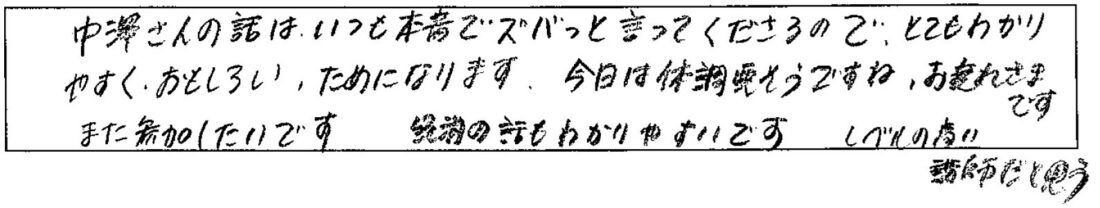 中澤さんの話は、いつも本音でズバっと言ってくださるので、とてもわかり
やすく、おもしろい、ためになります、今日は体調悪そうですね、お疲れさま
です
また参加したいです 経済の話もわかりやすいです レベルの高い
講師だと思う